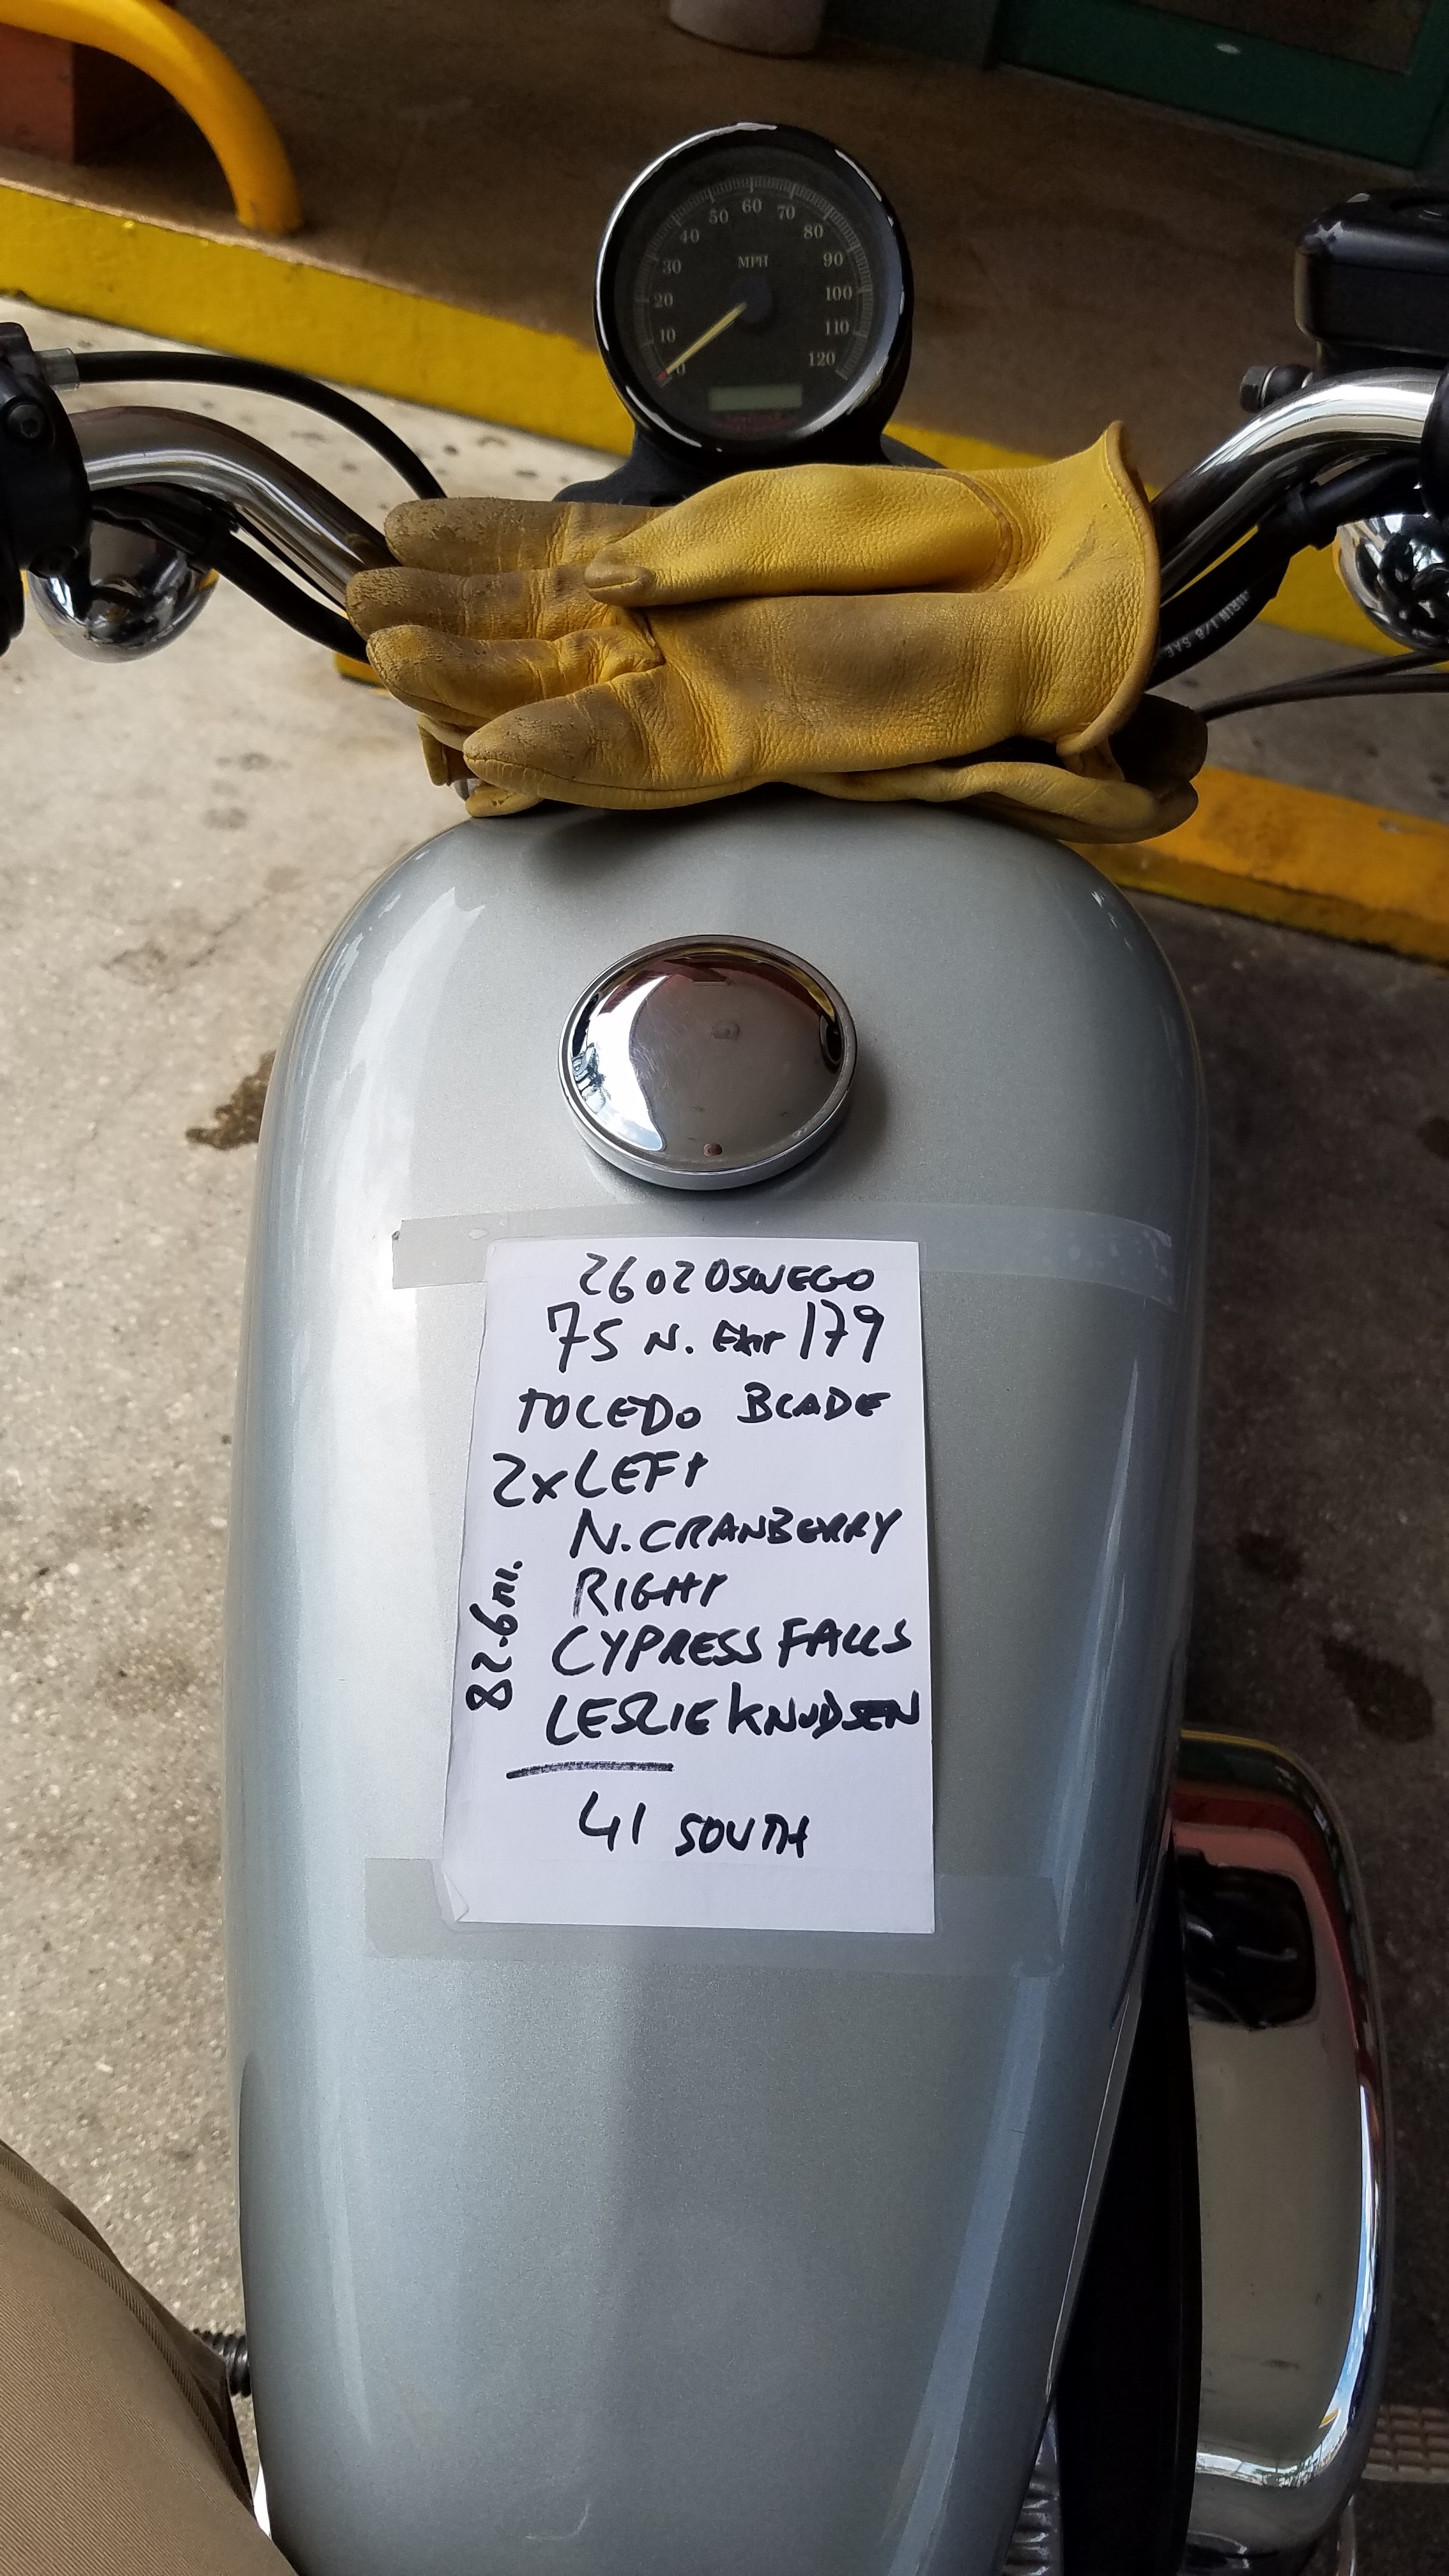 50 60 70
40 80
30 MPH 90
20 100
10 110
0 120
1/8 SAE
2602 OSWEGO
75 N. EXIT 179
TOLEDO BLADE
2x LEFT
N. CRANBERRY
RIGHT
CYPRESS FALLS
LESLIE KNUDSEN
82.6 mi.
41 SOUTH